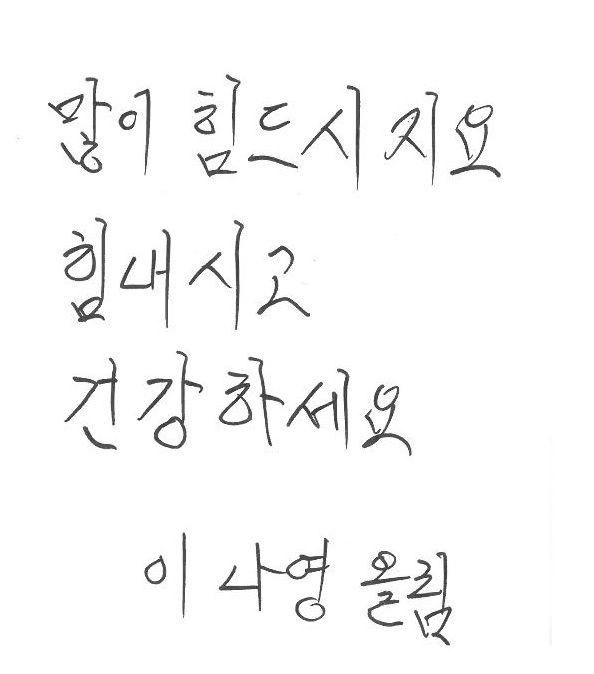 많이 힘드시지요
힘내시고
건강하세요
이나영 올림